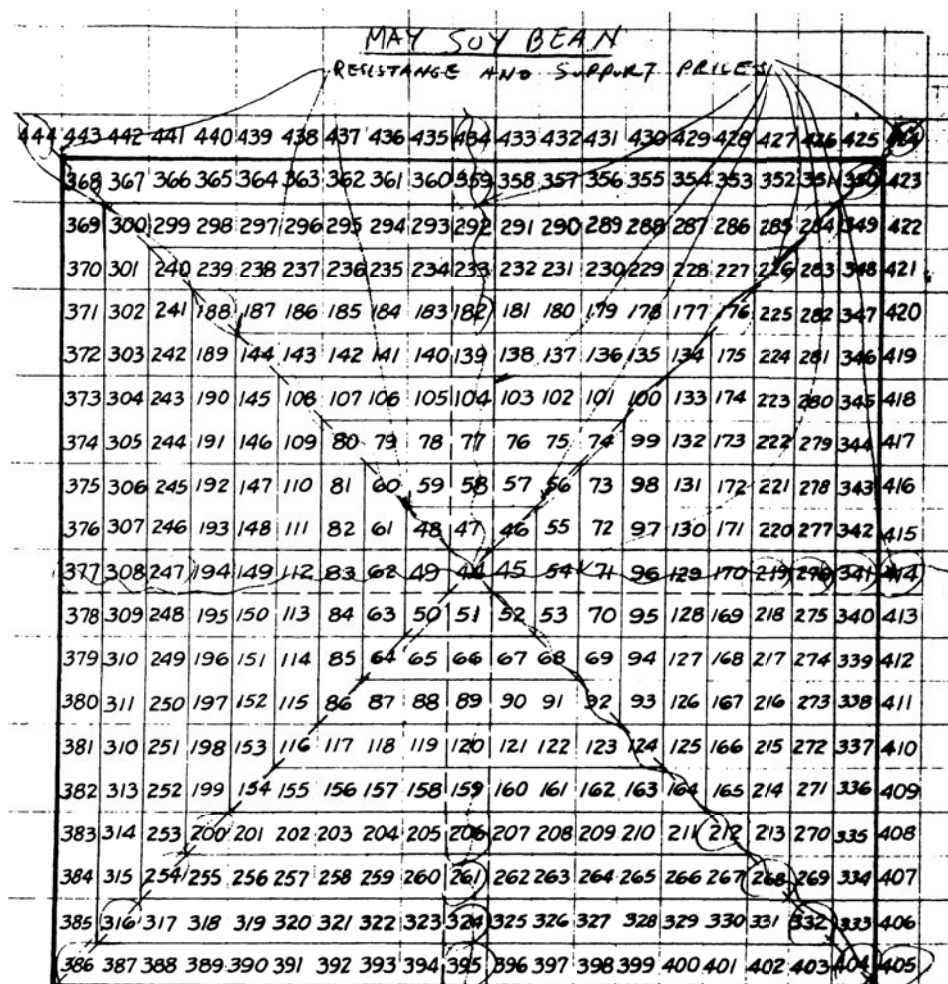 MAY SOY BEAN
RESISTANCE AND SUPPORT PRICES
444 443 442 441 440 439 438 437 436 435 434 433 432 431 430 429 428 427 426 425
368 367 366 365 364 363 362 361 360 359 358 357 356 355 354 353 352 351 350 423
369 300 299 298 297 296 295 294 293 292 291 290 289 288 287 286 285 284 349 422
370 301 240 239 238 237 236 235 234 233 232 231 230 229 228 227 226 283 348 421
371 302 241 188 187 186 185 184 183 182 181 180 179 178 177 176 225 282 347 420
372 303 242 189 144 143 142 141 140 139 138 137 136 135 134 175 224 281 346 419
373 304 243 190 145 108 107 106 105 104 103 102 101 100 133 174 223 280 345 418
374 305 244 191 146 109 80 79 78 77 76 75 74 99 132 173 222 279 344 417
375 306 245 192 147 110 81 60 59 58 57 56 73 98 131 172 221 278 343 416
376 307 246 193 148 111 82 61 48 47 46 55 72 97 130 171 220 277 342 415
377 308 247 194 149 112 83 62 49 44 45 54 71 96 129 170 219 276 341 414
378 309 248 195 150 113 84 63 50 51 52 53 70 95 128 169 218 275 340 413
379 310 249 196 151 114 85 64 65 66 67 68 69 94 127 168 217 274 339 412
380 311 250 197 152 115 86 87 88 89 90 91 92 93 126 167 216 273 338 411
381 310 251 198 153 116 117 118 119 120 121 122 123 124 125 166 215 272 337 410
382 313 252 199 154 155 156 157 158 159 160 161 162 163 164 165 214 271 336 409
383 314 253 200 201 202 203 204 205 206 207 208 209 210 211 212 213 270 335 408
384 315 254 255 256 257 258 259 260 261 262 263 264 265 266 267 268 269 334 407
385 316 317 318 319 320 321 322 323 324 325 326 327 328 329 330 331 332 333 406
386 387 388 389 390 391 392 393 394 395 396 397 398 399 400 401 402 403 404 405